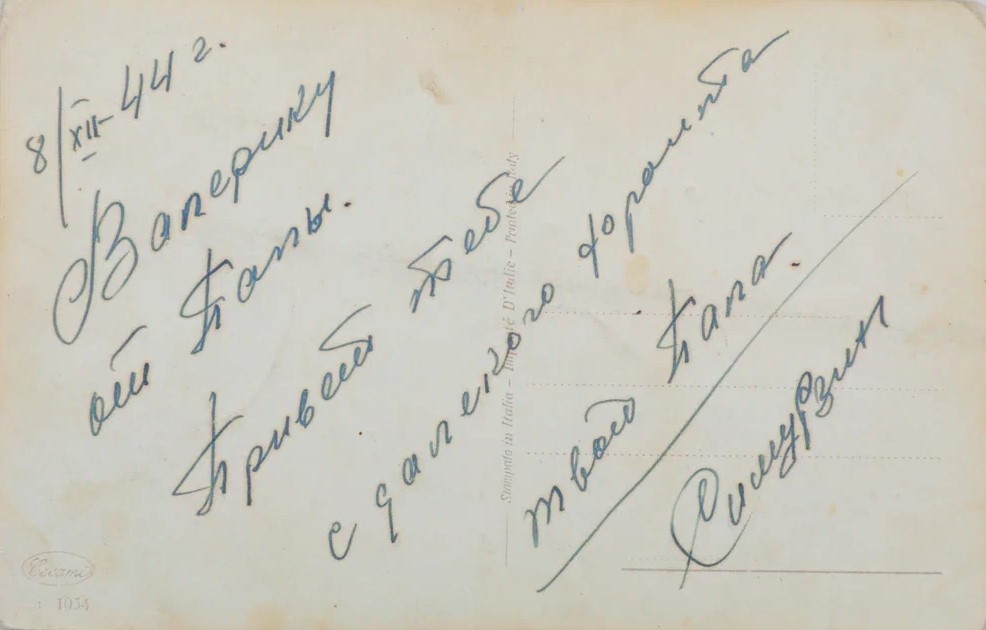 8/XII-44 г.
Валерику
от Папы.
Привет тебе
с далекого фронта
твой Папа.
Stampato in Italia – Imprimé D'Italie – Printed in Italy
Cecami
1034